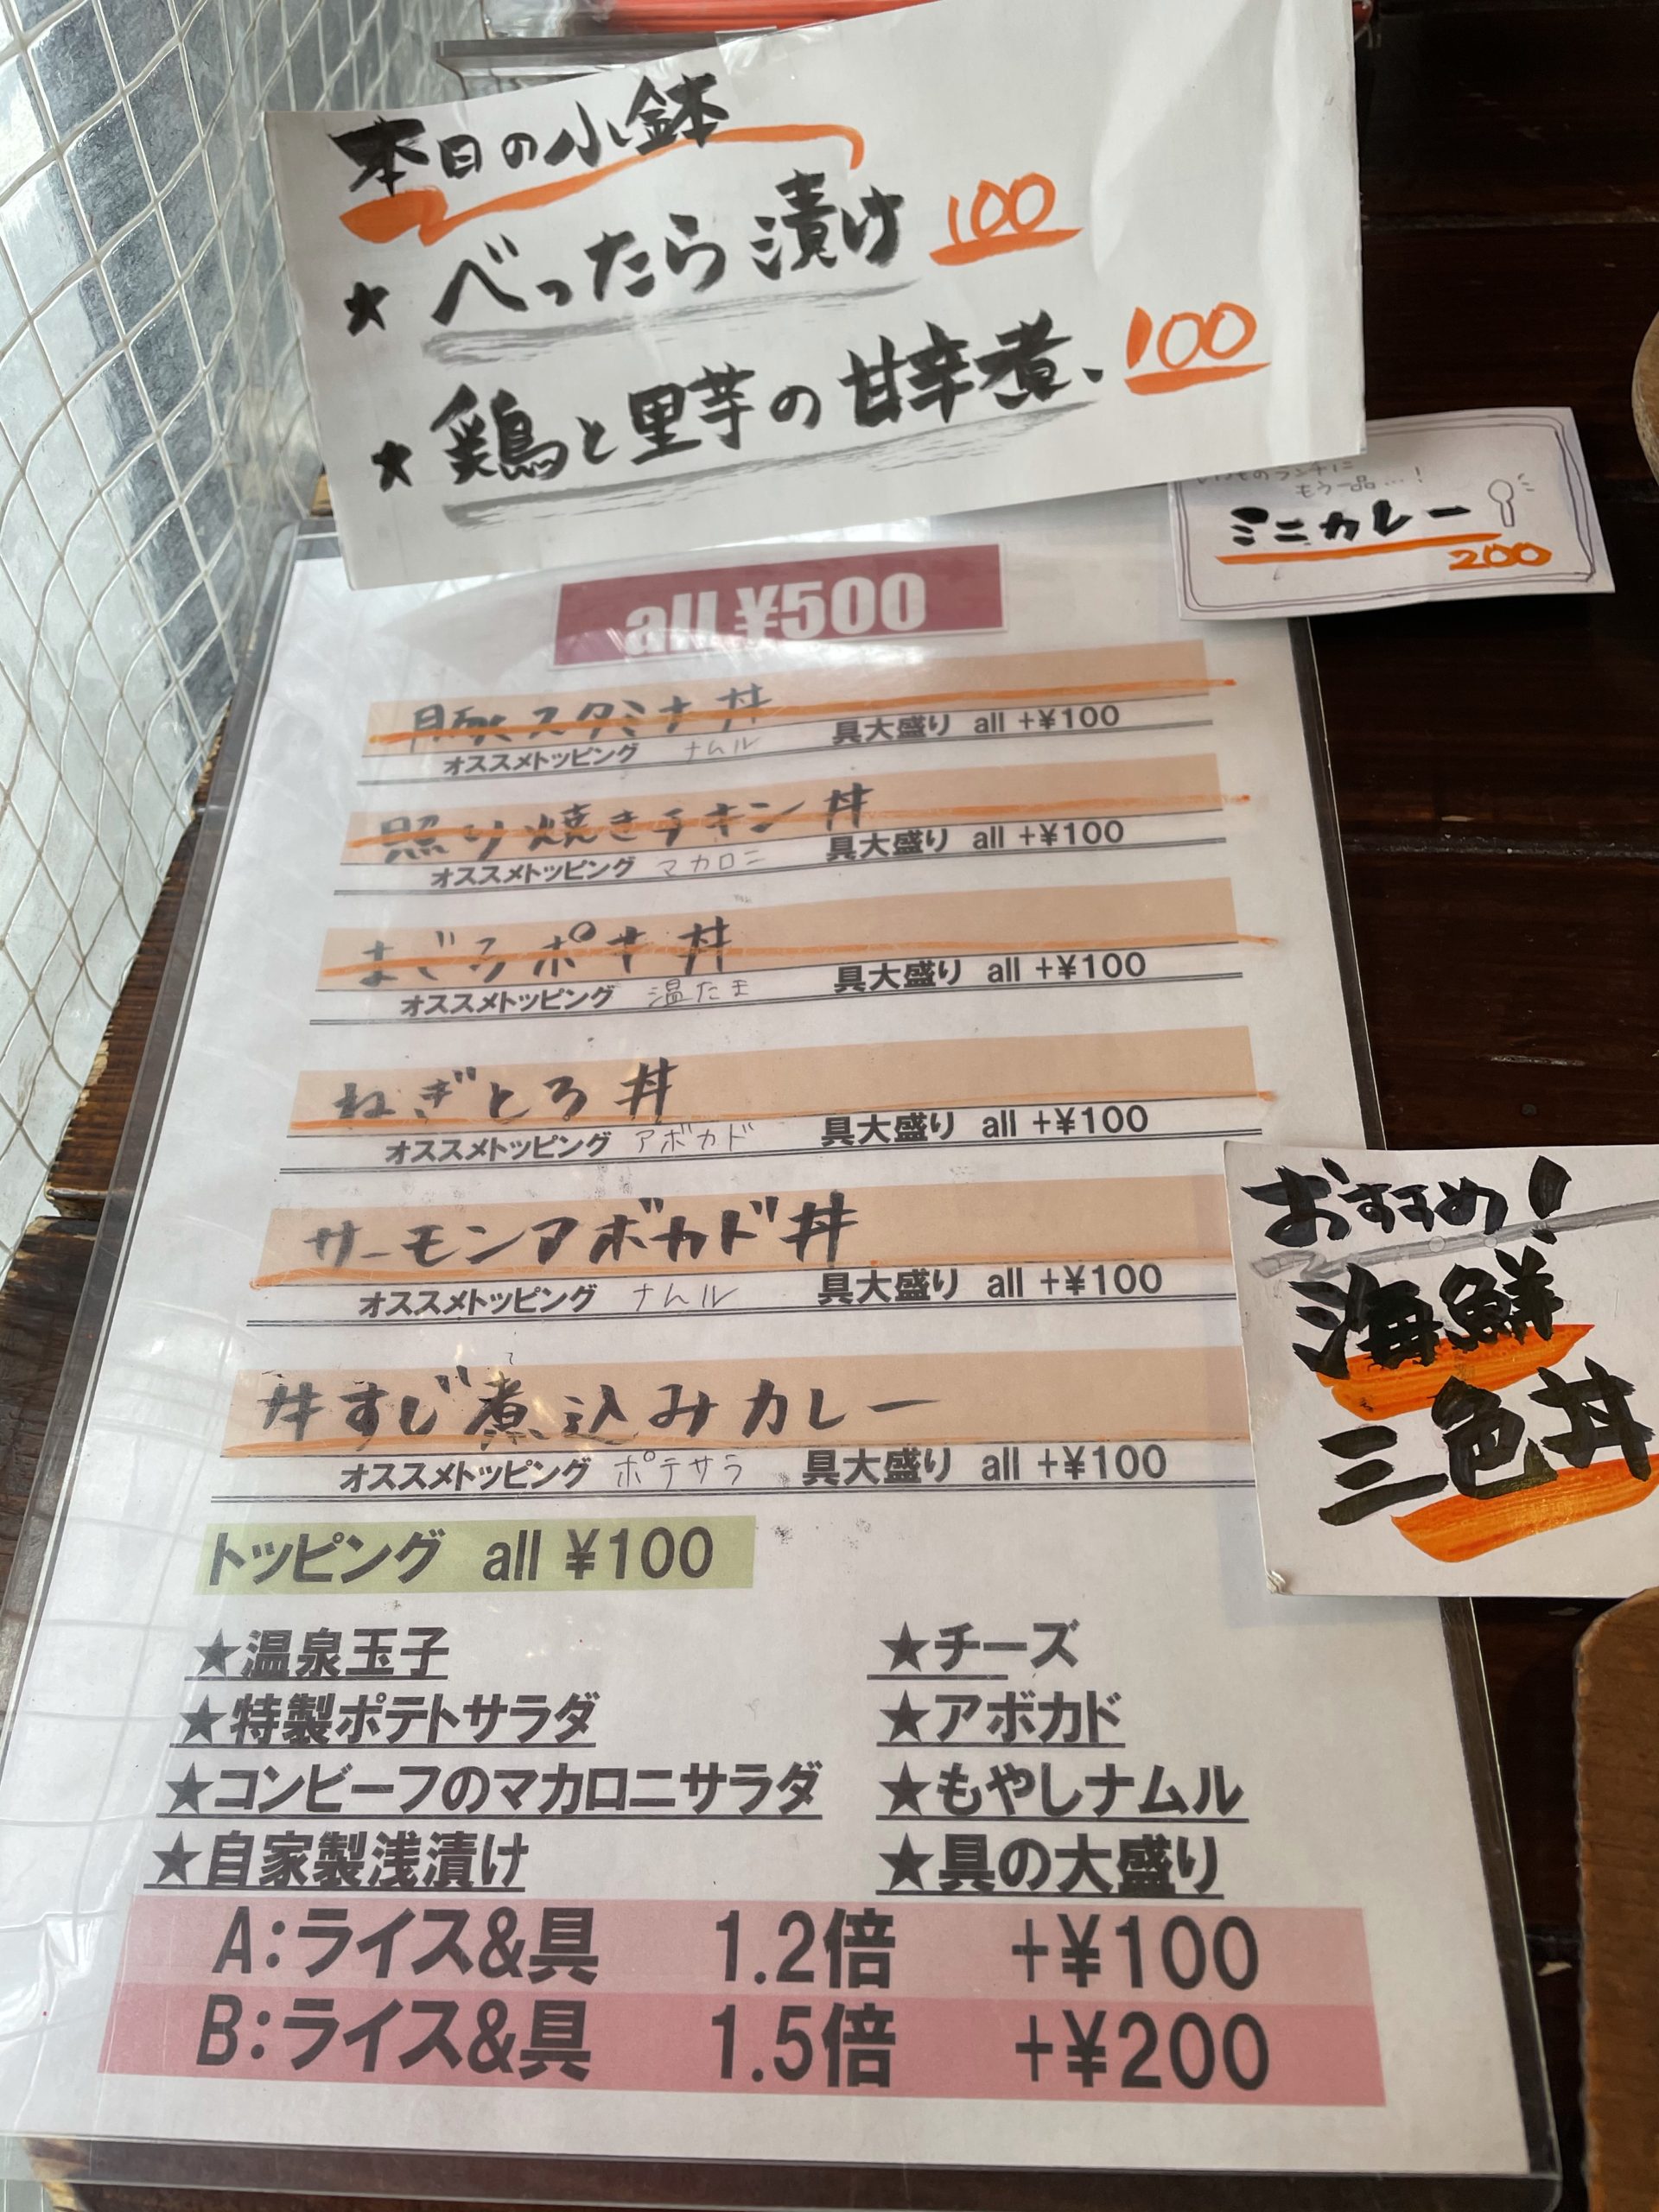 本日の小鉢
★ べったら漬け 100
★ 鶏と里芋の甘辛煮、100
もう一品…!
ミニカレー
200
all ¥500
豚スタミナ丼
オススメトッピング ナムル 具大盛り all +¥100
照り焼きチキン丼
オススメトッピング マカロニ 具大盛り all +¥100
まぐろポキ丼
オススメトッピング 温たま 具大盛り all +¥100
ねぎとろ丼
オススメトッピング アボカド 具大盛り all +¥100
サーモンアボカド丼
オススメトッピング ナムル 具大盛り all +¥100
牛すじ煮込みカレー
オススメトッピング ポテサラ 具大盛り all +¥100
おすすめ!
海鮮
三色丼
トッピング all ¥100
★温泉玉子 ★チーズ
★特製ポテトサラダ ★アボカド
★コンビーフのマカロニサラダ ★もやしナムル
★自家製浅漬け ★具の大盛り
A:ライス&具 1.2倍 +¥100
B:ライス&具 1.5倍 +¥200